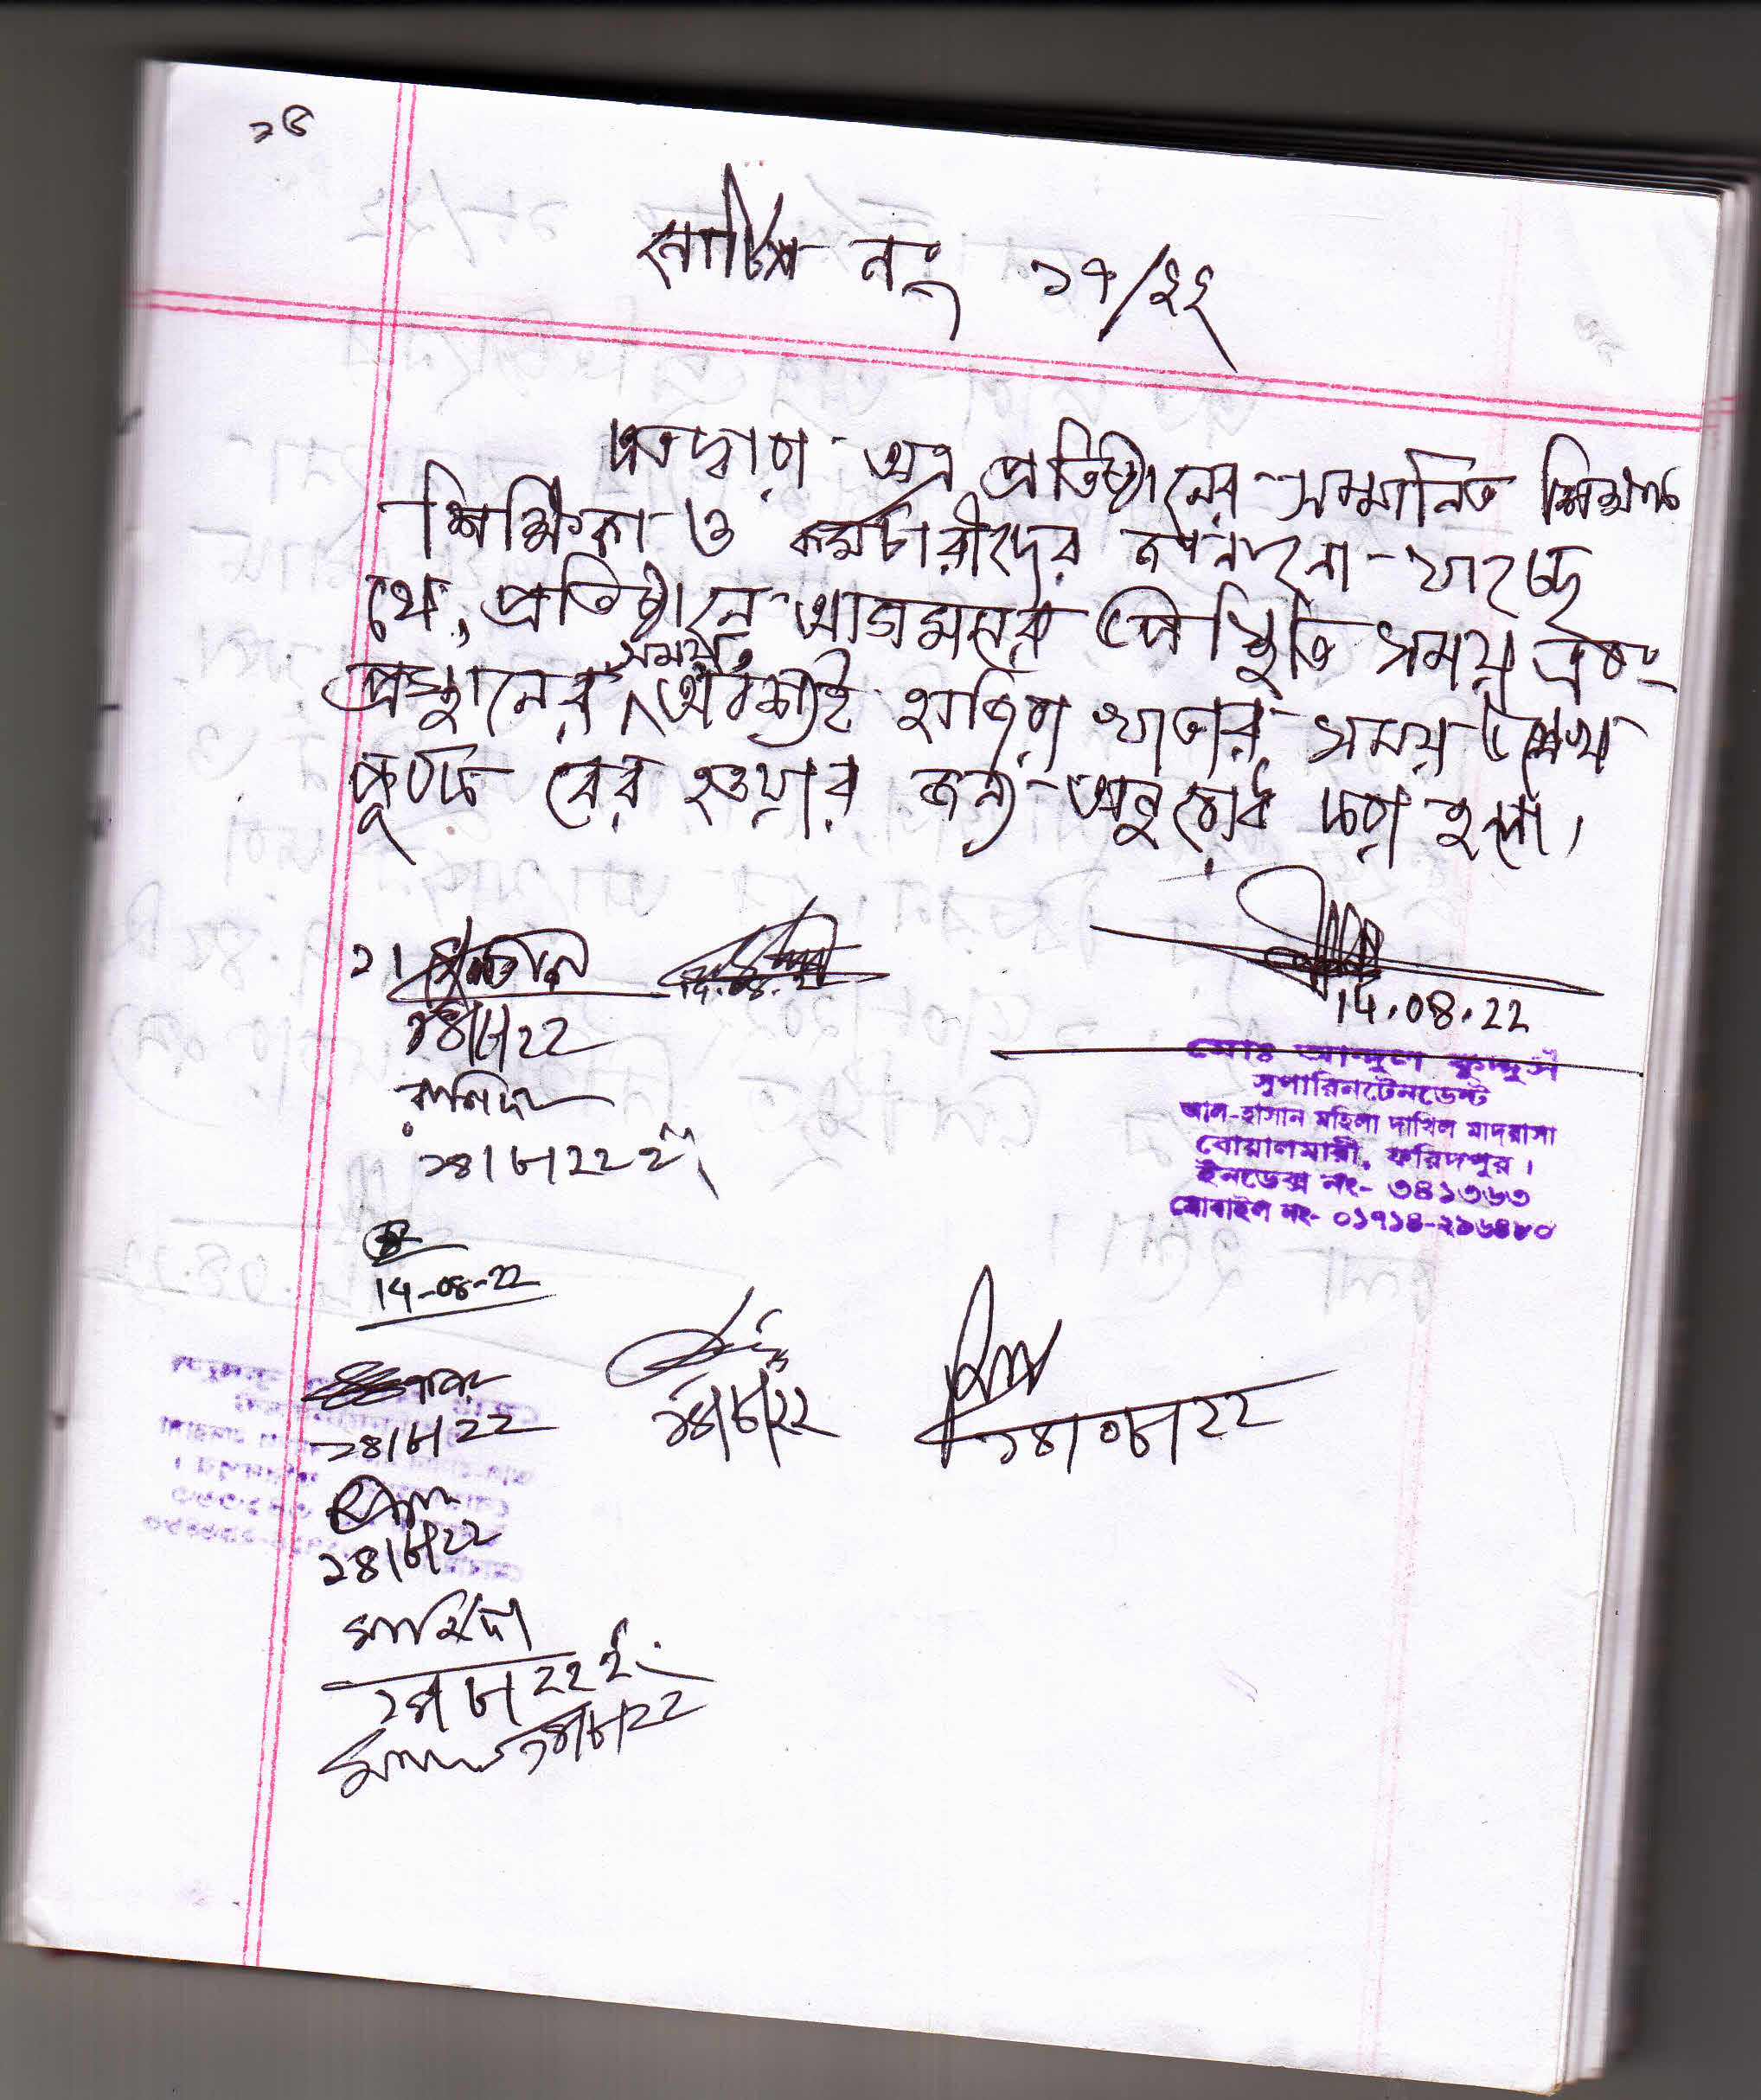 ২৪
নোটিশ নং ১৭/২২
এতদ্বারা অত্র প্রতিষ্ঠানের সম্মানিত শিক্ষক
শিক্ষিকা ও কর্মচারীদের জানানো যাচ্ছে
যে, প্রতিষ্ঠানে আগমনের সময় এবং
সময়
প্রস্থানের অবশ্যই হাজিরা খাতার সময় উল্লেখ
পূর্বক বের হওয়ার জন্য অনুরোধ করা হলো।
১।
14.08.22
১৪/৮/22
১৪/৮/২২ ইং
মোঃ আব্দুল কুদ্দুস
সুপারিনটেনডেন্ট
আল-হাসান মহিলা দাখিল মাদরাসা
বোয়ালমারী, ফরিদপুর।
ইনডেক্স নং- ৩৪১৩৬৩
মোবাইল নং- ০১৭১৪-২৯৬৪৮০
14-08-22
১৪/৮/22
১৪/৮/২২
১৪/০৮/22
১৪/৮/22
১৪/৮/22 ইং
১৪/৮/22